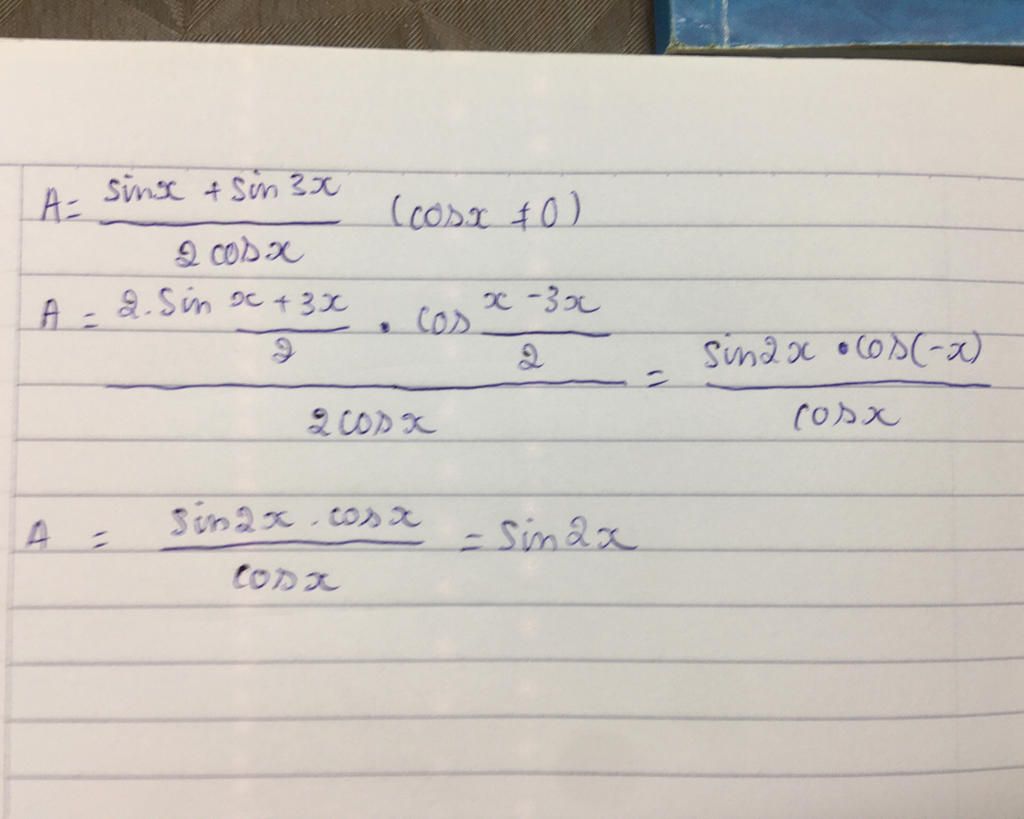 A = (sinx + sin 3x) / (2 cosx) (cosx ≠ 0)
A = (2. sin (x + 3x)/2 . cos (x - 3x)/2) / (2cosx) = (sin2x . cos(-x)) / (cosx)
A = (sin2x . cosx) / (cosx) = sin2x